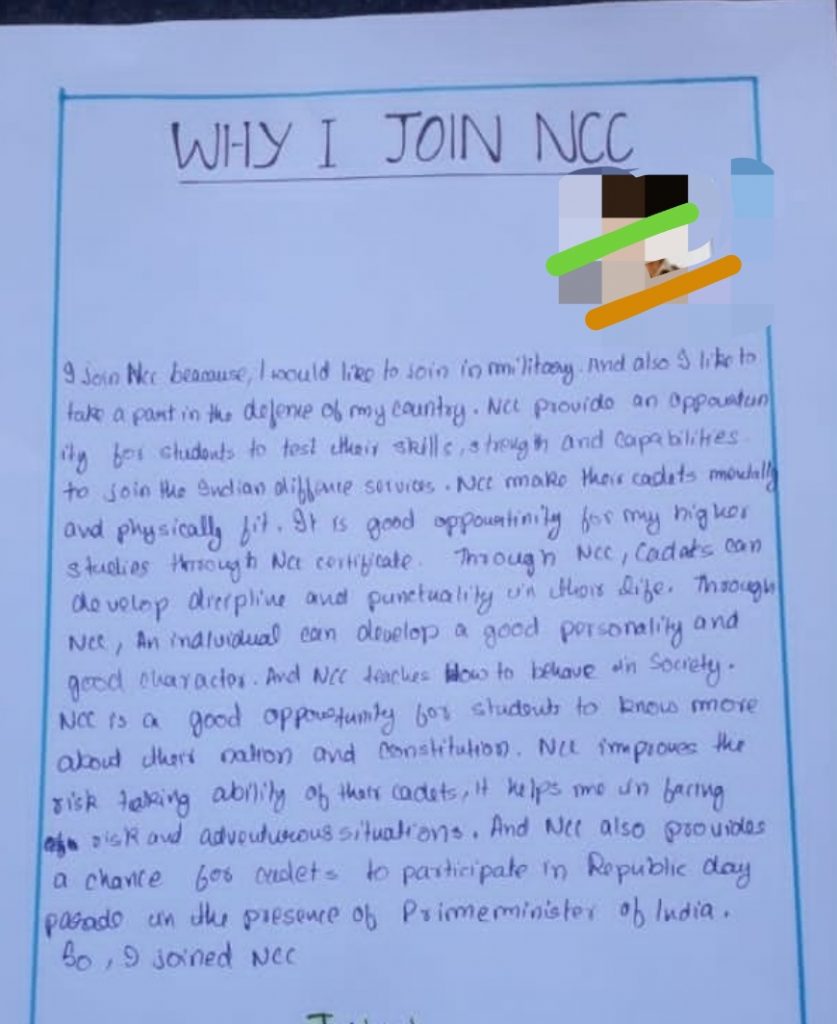 WHY I JOIN NCC
I Join Ncc beacause, I would like to Join in military. And also I like to
take a part in the defence of my country. NCC provide an oppoustun
ity for students to test their skills, strength and capabilities
to join the Indian diffence services. NCC make their cadets mentally
and physically fit. It is good oppourtinity for my higher
studies through Ncc certificate. Through NCC, Cadats can
develop and punctuality in their life. Through
NCC, An individual can develop a good personality and
good character. And NCC teaches How to behave in Society.
NCC is a good oppourtunity for students to know more
about their nation and Constitution. NCC improves the
risk taking ability of their cadets, it helps me in facing
risk and adventurous situations. And NCC also provides
a chance for cadets to participate in Republic day
parade in the presence of Primeminister of India.
So, I joined NCC